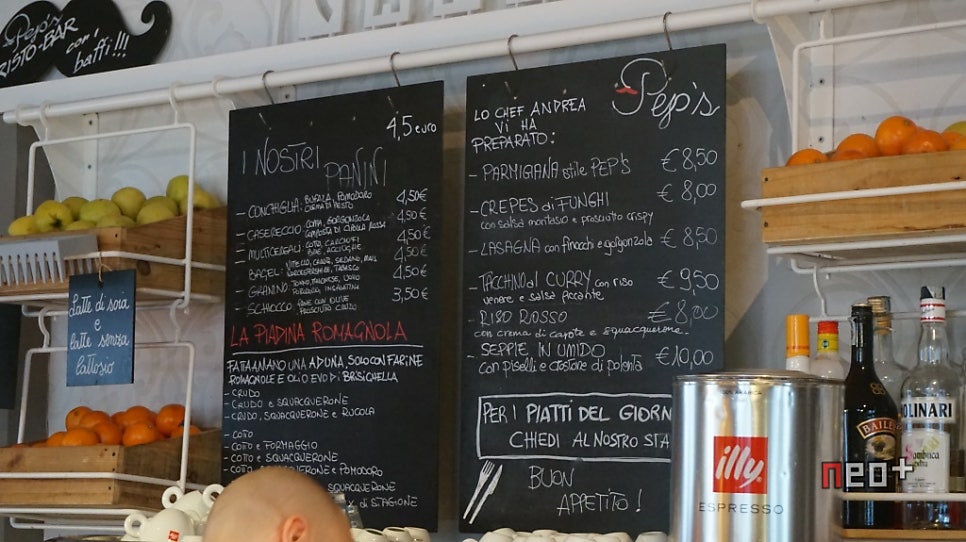 Pep's
RISTO-BAR
con i
baffi!!!
4,5 euro
I NOSTRI
PANINI
- CONCHIGLIA: BUFALA, POMODORO 4,50€
CREMA DI PESTO
- CASERECCIO: COPPA, GORGONZOLA 4,50€
COMPOSTA DI CIPOLLA ROSSA
- MULTICEREALI: COTTO, CARCIOFI 4,50€
- BAGEL: VITELLO, CAROTE, SEDANO, MAIS 4,50€
TABASCO
- GRANINO: TONNO, UOVO 4,50€
- SCHIOCCO: PANE CON OLIVE 3,50€
LA PIADINA ROMAGNOLA
FATTA A MANO UNA AD UNA, SOLO CON FARINE
ROMAGNOLE E OLIO EVO DI BRISIGHELLA
- CRUDO
- CRUDO E SQUACQUERONE
- CRUDO, SQUACQUERONE E RUCOLA
- COTTO
- COTTO E FORMAGGIO
- COTTO E SQUACQUERONE
- COTTO, SQUACQUERONE E POMODORO
SQUACQUERONE
di STAGIONE
Pep's
LO CHEF ANDREA
VI HA
PREPARATO:
- PARMIGIANA stile PEP'S €8,50
- CREPES di FUNGHI €8,00
con salsa montasio e prosciutto crispy
- LASAGNA con finocchi e gorgonzola €8,50
- TACCHINO al CURRY con riso €9,50
venere e salsa piccante
- RISO ROSSO €8,00
con crema di carote e squacquerone.
- SEPPIE IN UMIDO €10,00
con piselli e crostone di polenta
PER I PIATTI DEL GIORN
CHIEDI AL NOSTRO STA
BUON
APPETITO!
Latte di soia
e
latte senza
lattosio
illy
ESPRESSO
BAILEYS
MOLINARI
Sambuca
extra
neo+